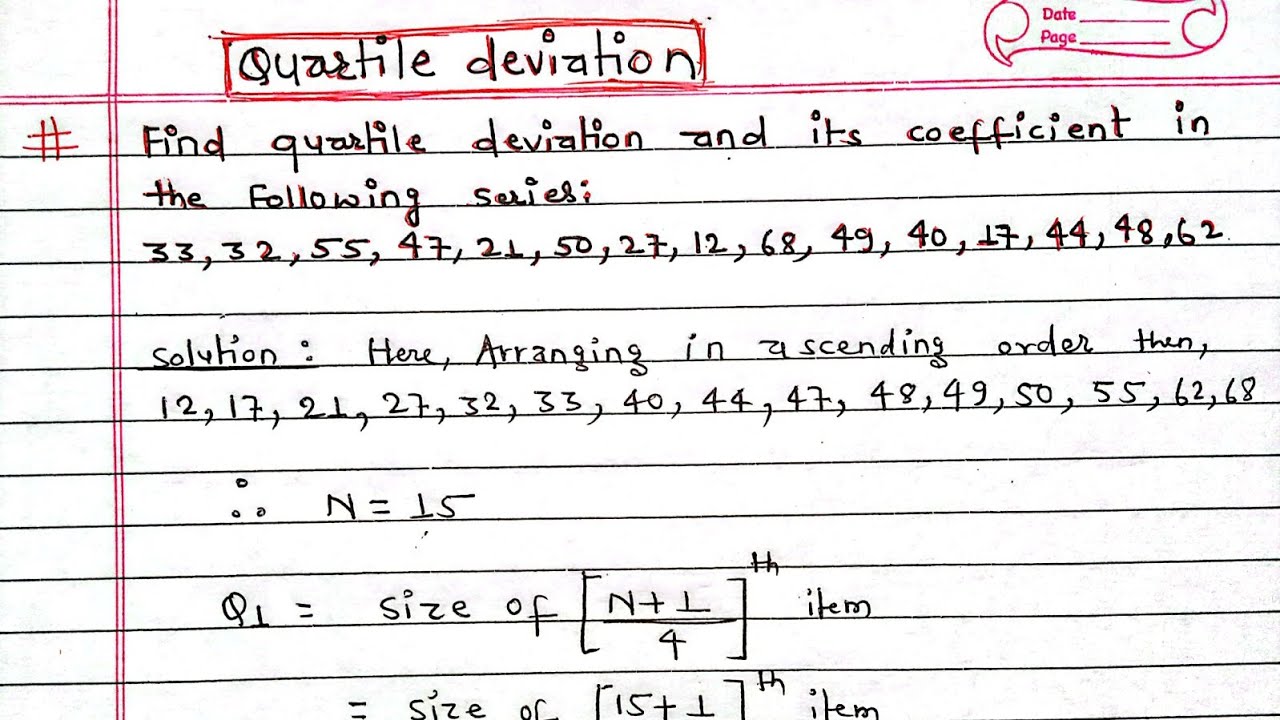 Date
Page
Quartile deviation
# Find quartile deviation and its coefficient in
the following series:
33, 32, 55, 47, 21, 50, 27, 12, 68, 49, 40, 17, 44, 48, 62.
Solution: Here, Arranging in ascending order then,
12, 17, 21, 27, 32, 33, 40, 44, 47, 48, 49, 50, 55, 62, 68
∴ N = 15
Q1 = size of [N+1/4]th item
= size of [15+1]th item